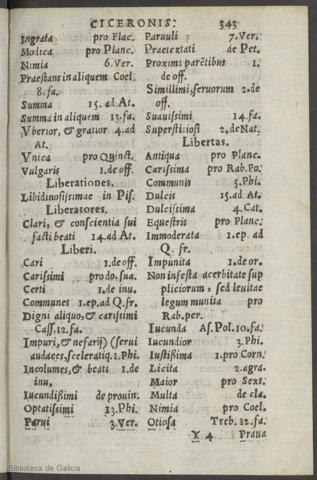 CICERONIS. 343
Ingrata pro Flac.
Modica pro Planc.
Nimia 6. Ver.
Praestans in aliquem Coel.
8. fa.
Summa 15. ad At.
Summa in aliquem 13. fa.
Vberior, & gratior 4. ad
At.
Vnica pro Quinct.
Vulgaris 1. de off.
Liberationes.
Libidinosissimae in Pis.
Liberatores.
Clari, & conscientia sui
facti beati 14. ad At.
Liberi.
Cari 1. de off.
Carissimi pro do. sua.
Certi 1. de inu.
Communes 1. ep. ad Q. fr.
Digni aliquo, & carissimi
Cass. 12. fa.
Impuri, & nefarij) (serui
audaces, sceleratiq. 1. Phi.
Incolumes, & beati 1. de
inu.
Iucundissimi de prouin.
Optatissimi 13. Phi.
Parui 3. Ver.
Paruuli 7. Ver.
Praetextati de Pet.
Proximi parētibus 1.
de off.
Simillimi, seruorum 2. de
off.
Suauissimi 14. fa.
Superstitiosi 2. de Nat.
Libertas.
Antiqua pro Planc.
Carissima pro Rab. Po.
Communis 5. Phi.
Dulcis 15. ad At.
Dulcissima 4. Cat.
Equestris pro Planc.
Immoderata 1. ep. ad
Q. fr.
Impunita 1. de or.
Non infesta acerbitate sup
pliciorum, sed leuitate
legum munita pro
Rab. per.
Iucunda As. Pol. 10. fa.
Iucundior 3. Phi.
Iustissima 1. pro Corn.
Licita 2. agra.
Maior pro Sext.
Multa de cla.
Nimia pro Coel.
Otiosa Treb. 12. fa.
Y 4 Praua
Biblioteca de Galicia